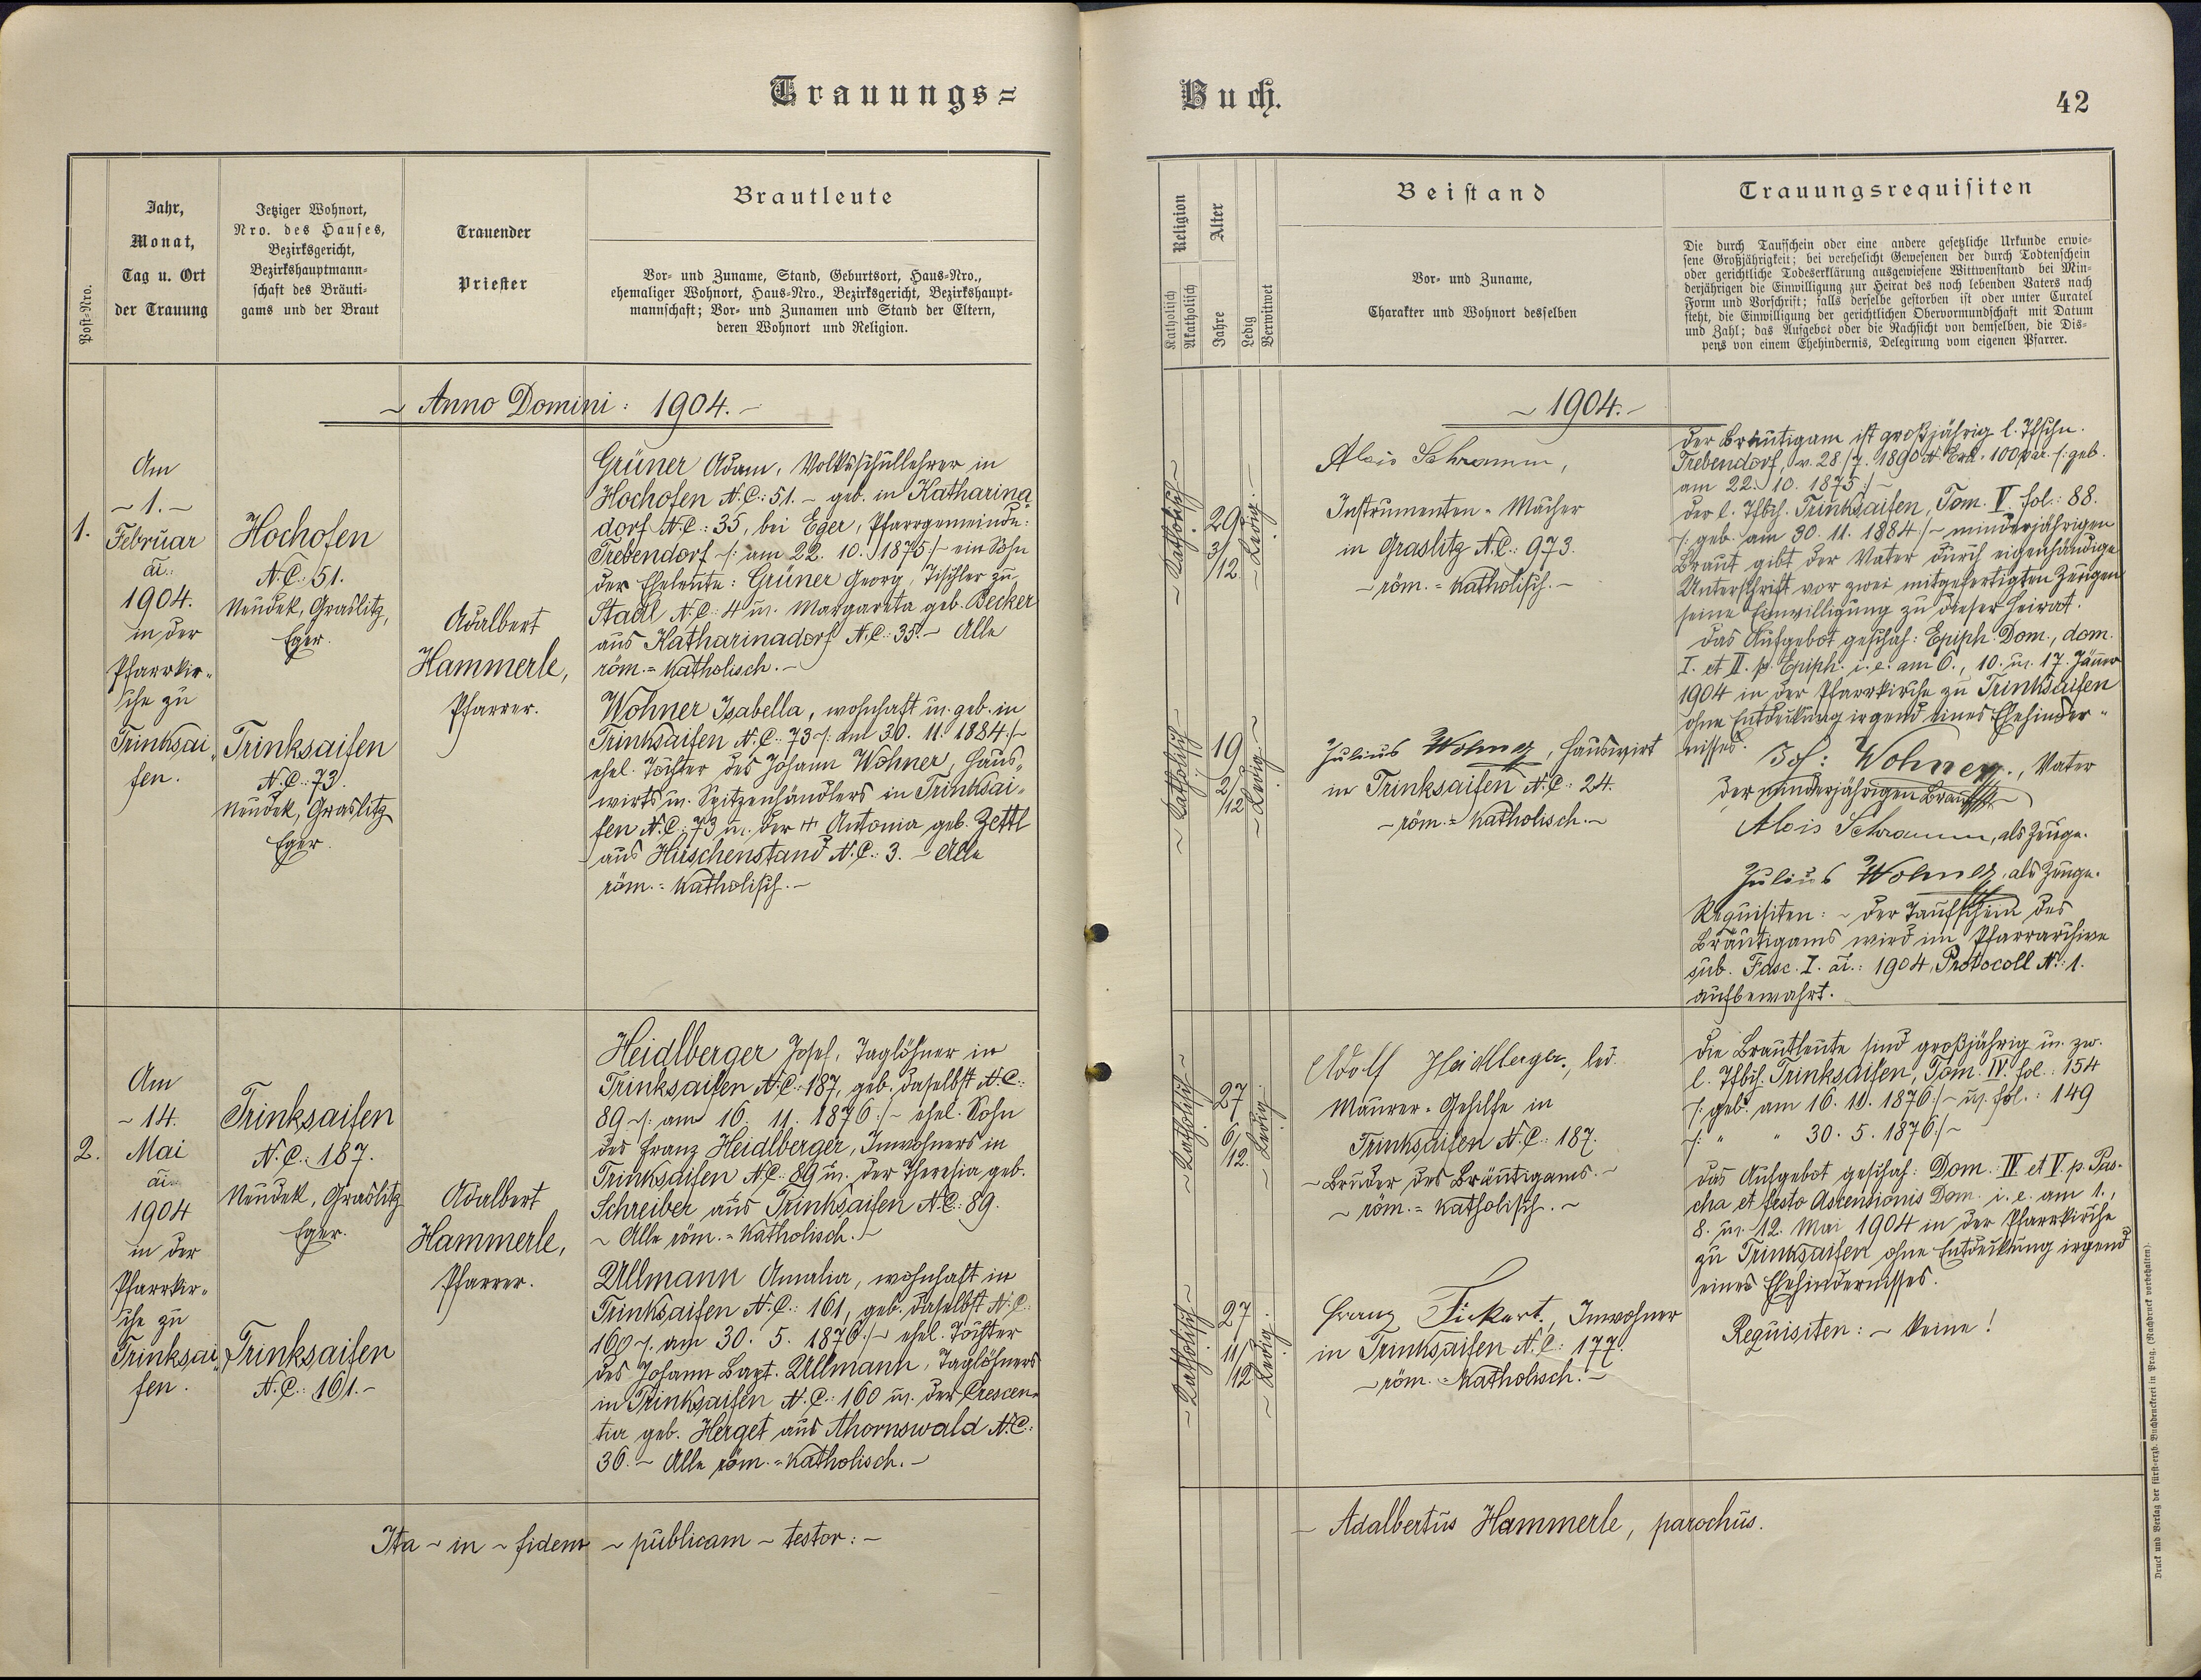 Trauungs=
Post-Nro.
Jahr,
Monat,
Tag u. Ort
der Trauung
Jetziger Wohnort,
Nro. des Hauses,
Bezirksgericht,
Bezirkshauptmann-
schaft des Bräuti-
gams und der Braut
Trauender
Priester
Brautleute
Vor- und Zuname, Stand, Geburtsort, Haus-Nro.,
ehemaliger Wohnort, Haus-Nro., Bezirksgericht, Bezirkshaupt-
mannschaft; Vor- und Zunamen und Stand der Eltern,
deren Wohnort und Religion.
~ Anno Domini: 1904. –
1.
Am
~ 1. ~
Februar
ai.:
1904.
in der
Pfarrkir-
che zu
Trinksai-
fen.
Hochofen
N.C.: 51.
Neudek, Graslitz,
Eger.
Trinksaifen
N.C.: 73.
Neudek, Graslitz
Eger.
Adalbert
Hammerle,
Pfarrer.
Grüner Adam, Volksschullehrer in
Hochofen N.C.: 51. – geb. in Katharina
dorf N.C.: 35, bei Eger, Pfarrgemeinde:
Trebendorf /: am 22. 10. 1875 :/ – ein Sohn
der Eheleute: Grüner Georg, Tischler zu
Stadl N.C.: 4 u. Margareta geb. Becker
aus Katharinadorf N.C.: 35. – Alle
röm.=katholisch. –
Wohner Isabella, wohnhaft u. geb. in
Trinksaifen N.C.: 73 /: am 30. 11. 1884 :/ –
ehel. Tochter des Johann Wohner, Haus-
wirts u. Spitzenhändlers in Trinksai-
fen N.C.: 73 u. der + Antonia geb. Zettl
aus Hirschenstand N.C.: 3. – Alle
röm.=katholisch. –
2.
Am
~ 14.
Mai
ai.
1904
in der
Pfarrkir-
che zu
Trinksai-
fen.
Trinksaifen
N.C.: 187.
Neudek, Graslitz
Eger.
Trinksaifen
N.C.: 161. –
Adalbert
Hammerle,
Pfarrer.
Heidlberger Josef, Taglöhner in
Trinksaifen N.C.: 187, geb. daselbst N.C.:
89 /: am 16. 11. 1876 :/ – ehel. Sohn
des Franz Heidlberger, Inwohners in
Trinksaifen N.C.: 89 u. der Theresia geb.
Schreiber aus Trinksaifen N.C.: 89.
~ Alle röm.=katholisch. –
Ullmann Amalia, wohnhaft in
Trinksaifen N.C.: 161, geb. daselbst N.C.:
160 /: am 30. 5. 1876 :/ – ehel. Tochter
des Johann Bapt. Ullmann, Taglöhners
in Trinksaifen N.C.: 160 u. der Crescen-
tia geb. Herget aus Ahornswald N.C.:
36. – Alle röm.=katholisch. –
Ita ~ in ~ fidem ~ publicam ~ testor: –
Buch.
42
Religion
Katholisch
Akatholisch
Alter
Jahre
Ledig
Verwitwet
Beistand
Vor- und Zuname,
Charakter und Wohnort desselben
Trauungsrequisiten
Die durch Taufschein oder eine andere gesetzliche Urkunde erwie-
sene Großjährigkeit; bei verehelicht Gewesenen der durch Todtenschein
oder gerichtliche Todeserklärung ausgewiesene Wittwenstand bei Min-
derjährigen die Einwilligung zur Heirat des noch lebenden Vaters nach
Form und Vorschrift; falls derselbe gestorben ist oder unter Curatel
steht, die Einwilligung der gerichtlichen Obervormundschaft mit Datum
und Zahl; das Aufgebot oder die Nachsicht von demselben, die Dis-
pens von einem Ehehindernis, Delegirung vom eigenen Pfarrer.
~ 1904. –
~ Katholisch ~
29
3/12
~ Ledig. ~
Alois Schramm,
Instrumenten-Macher
in Graslitz N.C.: 973.
– röm.=katholisch. –
~ Katholisch ~
19
2/12
~ Ledig. ~
Julius Wohner, Hauswirt
in Trinksaifen N.C.: 24.
– röm.=katholisch. –
Der Bräutigam ist großjährig l. Tfschn.
Trebendorf, v. 28/7. 1890 /: geb.
am 22. 10. 1875 :/ –
Der l. Tfbch. Trinksaifen, Tom. V. fol.: 88.
/: geb. am 30. 11. 1884 :/ – minderjährigen
Braut gibt der Vater durch eigenhändige
Unterschrift vor zwei mitgefertigten Zeugen
seine Einwilligung zu dieser Heirat.
Das Aufgebot geschah: Epiph. Dom., dom.
I. et II. p. Epiph. i. e. am 6., 10. u. 17. Jänner
1904 in der Pfarrkirche zu Trinksaifen
ohne Entdeckung irgend eines Ehehinder-
nisses. Joh: Wohner., Vater
der minderjährigen Braut.
Alois Schramm, als Zeuge.
Julius Wohner, als Zeuge.
Requisiten: – Der Taufschein des
Bräutigams wird im Pfarrarchive
sub. Fasc. I. ai.: 1904, Protocoll N.: 1.
aufbewahrt.
~ Katholisch ~
27
6/12.
~ Ledig ~
Adolf Heidlberger, led.
Maurer-Gehilfe in
Trinksaifen N.C.: 187.
– Bruder des Bräutigams. –
~ röm.=katholisch. ~
~ Katholisch ~
27
11/12
~ Ledig. ~
Franz Fickert, Inwohner
in Trinksaifen N.C.: 177.
– röm.=katholisch. –
Die Brautleute sind großjährig u. zw.
l. Tfbch. Trinksaifen, Tom. IV. fol.: 154
/: geb. am 16. 11. 1876 :/ – u. fol.: 149
/: " " 30. 5. 1876 :/ ~
Das Aufgebot geschah: Dom. IV et V. p. Pas-
cha et festo Ascensionis Dom. i. e. am 1.,
8. u. 12. Mai 1904 in der Pfarrkirche
zu Trinksaifen ohne Entdeckung irgend
eines Ehehindernisses.
Requisiten: – keine!
– Adalbertus Hammerle, parochus.
Druck und Verlag der fürst-erzb. Buchdruckerei in Prag. (Nachdruck vorbehalten).